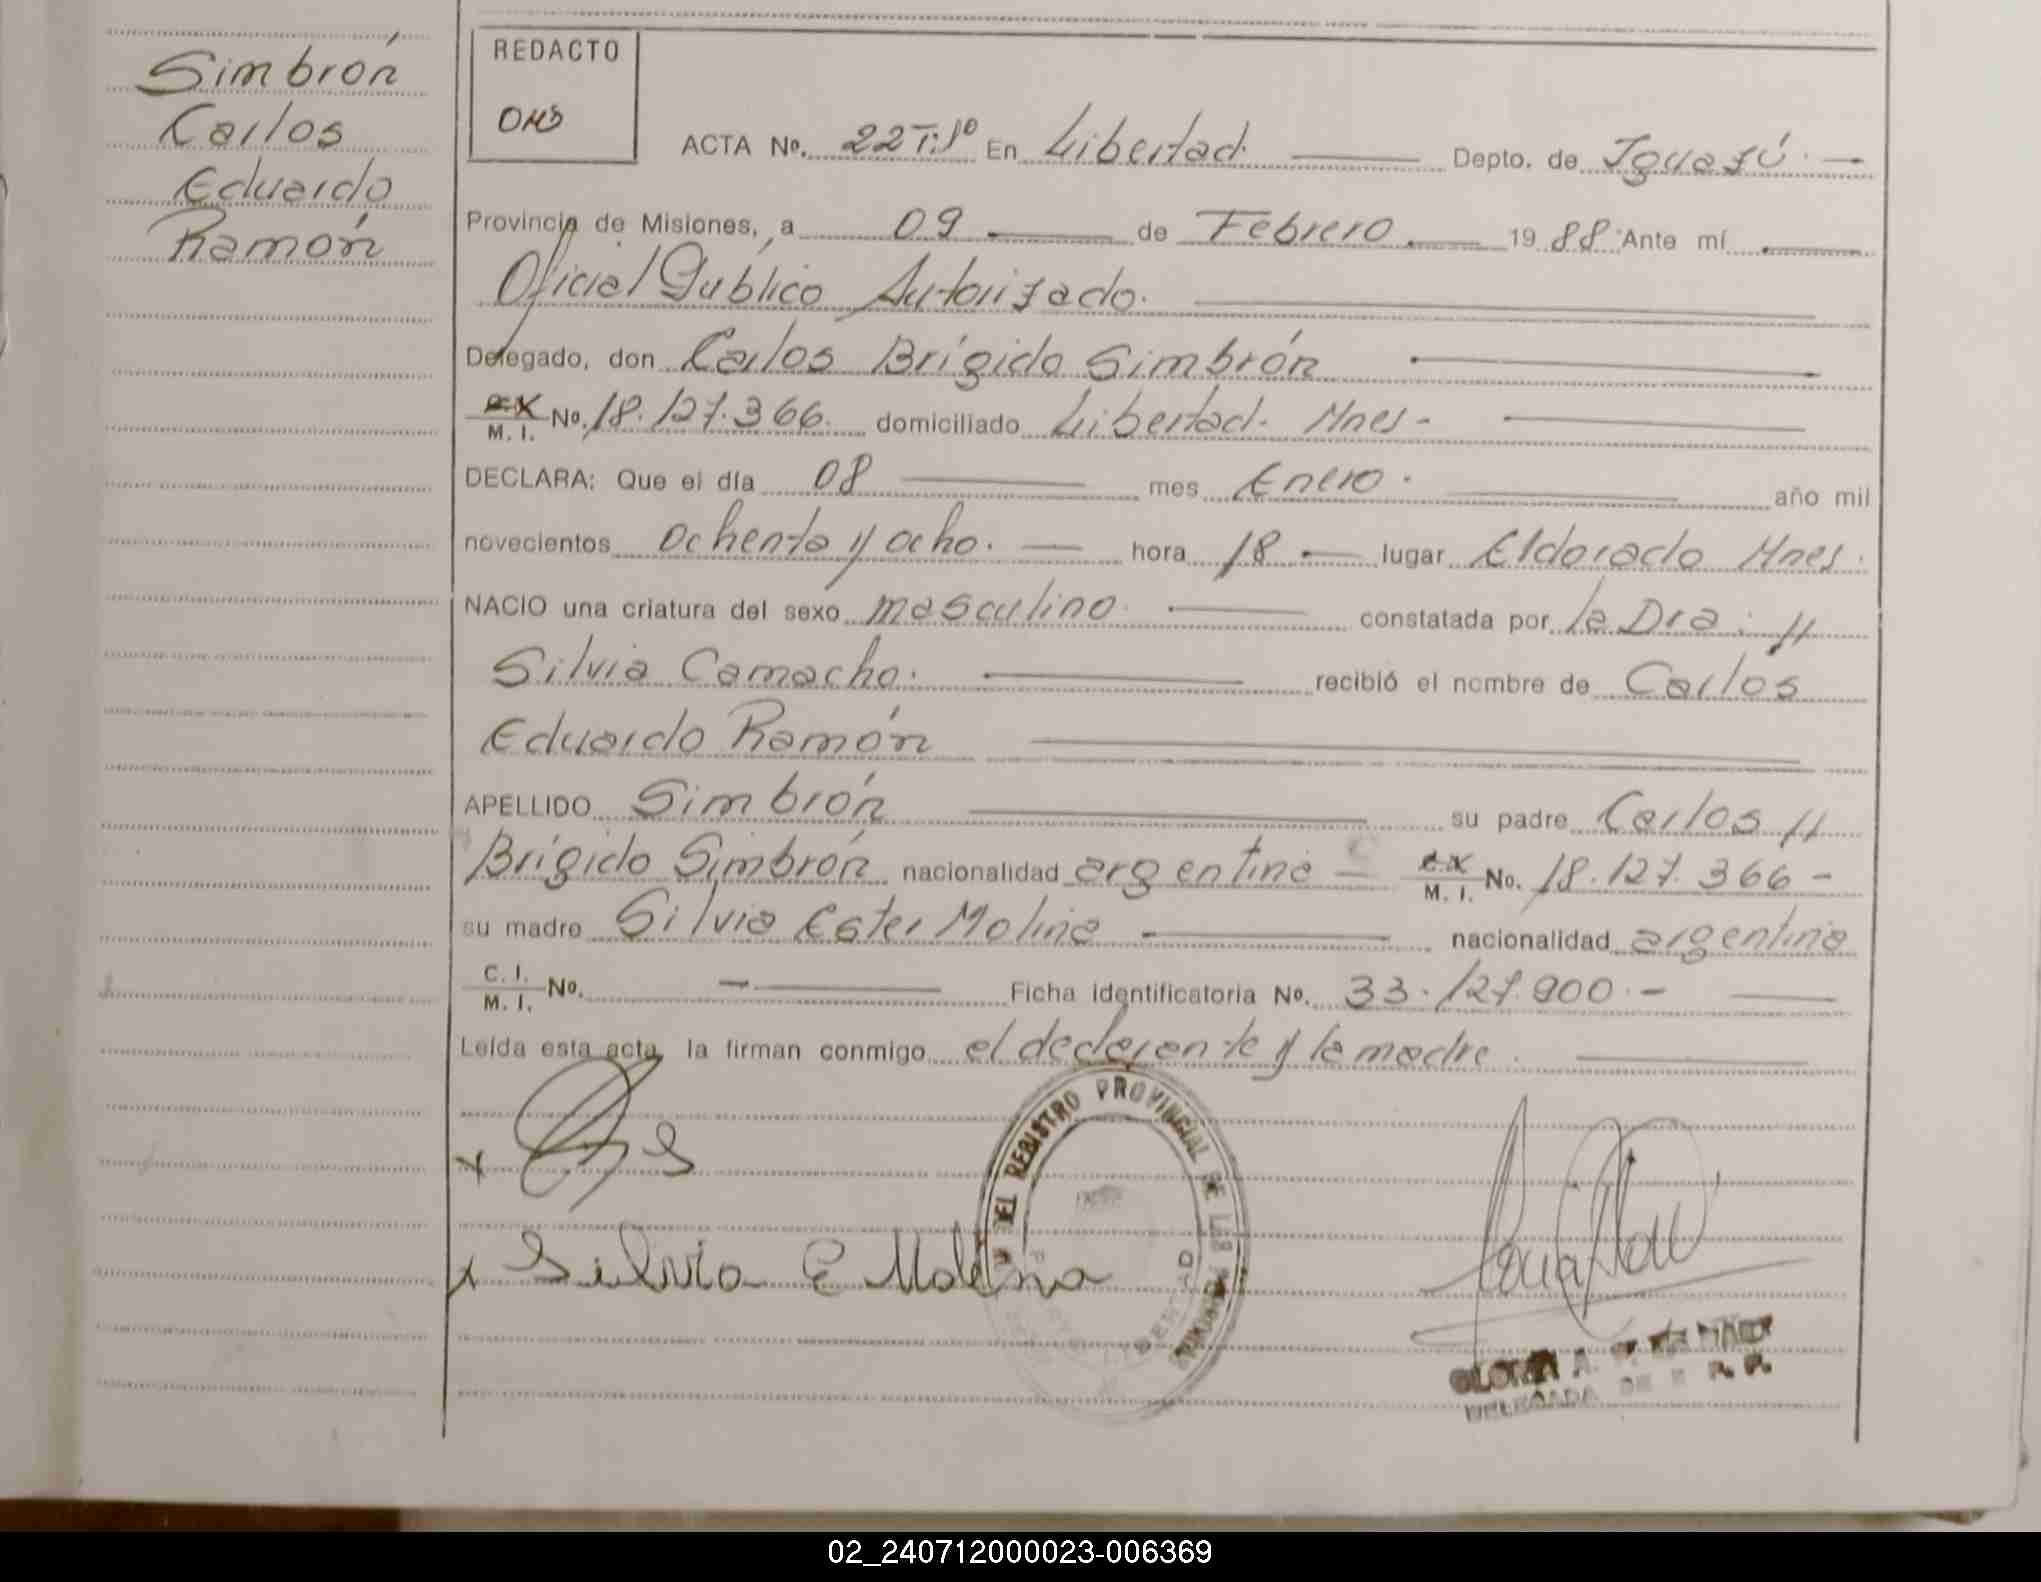 Simbrón
Carlos
Eduardo
Ramón
REDACTO
ACTA No. 22 T:1º En Libertad. Depto. de Iguazú.
Provincia de Misiones, a 09 de Febrero 19 88 Ante mí
Oficial Público Autorizado.
Delegado, don Carlos Brígido Simbrón
M. I. No. 18.127.366. domiciliado Libertad. Mnes-
DECLARA: Que el día 08 mes Enero. año mil
novecientos ochenta y ocho. hora 18 lugar Eldorado Mnes.
NACIO una criatura del sexo masculino. constatada por la Dra. //
Silvia Camacho. recibió el nombre de Carlos
Eduardo Ramón
APELLIDO Simbrón su padre Carlos //
Brígido Simbrón nacionalidad argentina M. I. No. 18.127.366-
su madre Silvia Ester Molina nacionalidad argentina
C. I. M. I. No. - Ficha identificatoria No. 33.127.900.-
Leída esta acta, la firman conmigo el declarente y la madre.
DEL REGISTRO PROVINCIAL DE LAS PERSONAS
x Silvia E Molina
GLORIA A.
DELEGADA DE R. P.
02_240712000023-006369